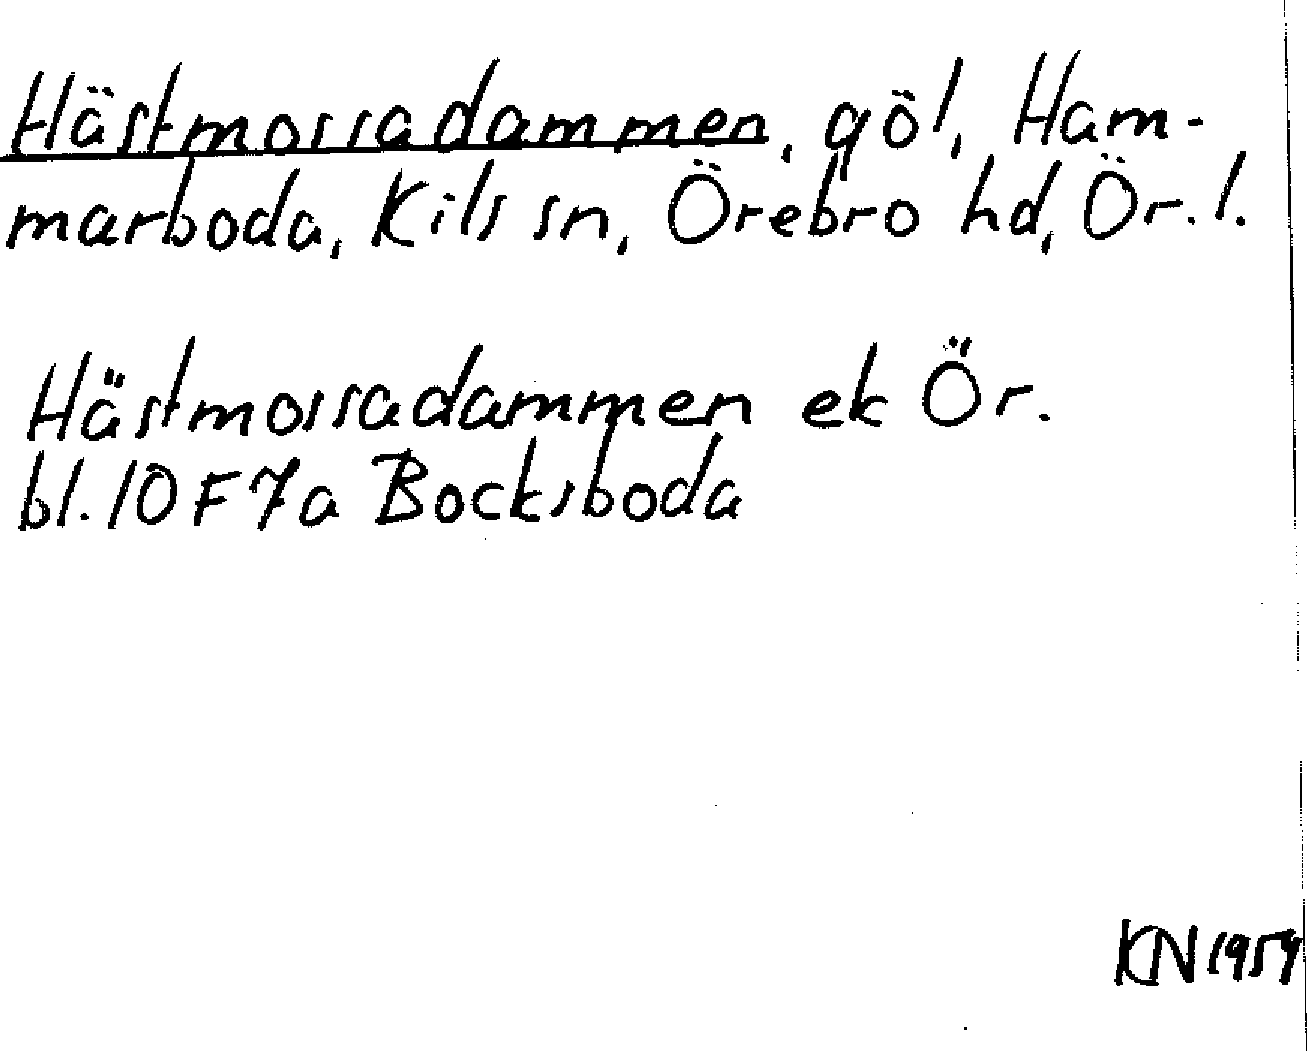 Hästmossadammen, göl, Ham-
marboda, Kils sn, Örebro hd, Ör. l.
Hästmossadammen ek Ör.
bl. 10 F 7a Bocksboda
KN 1959